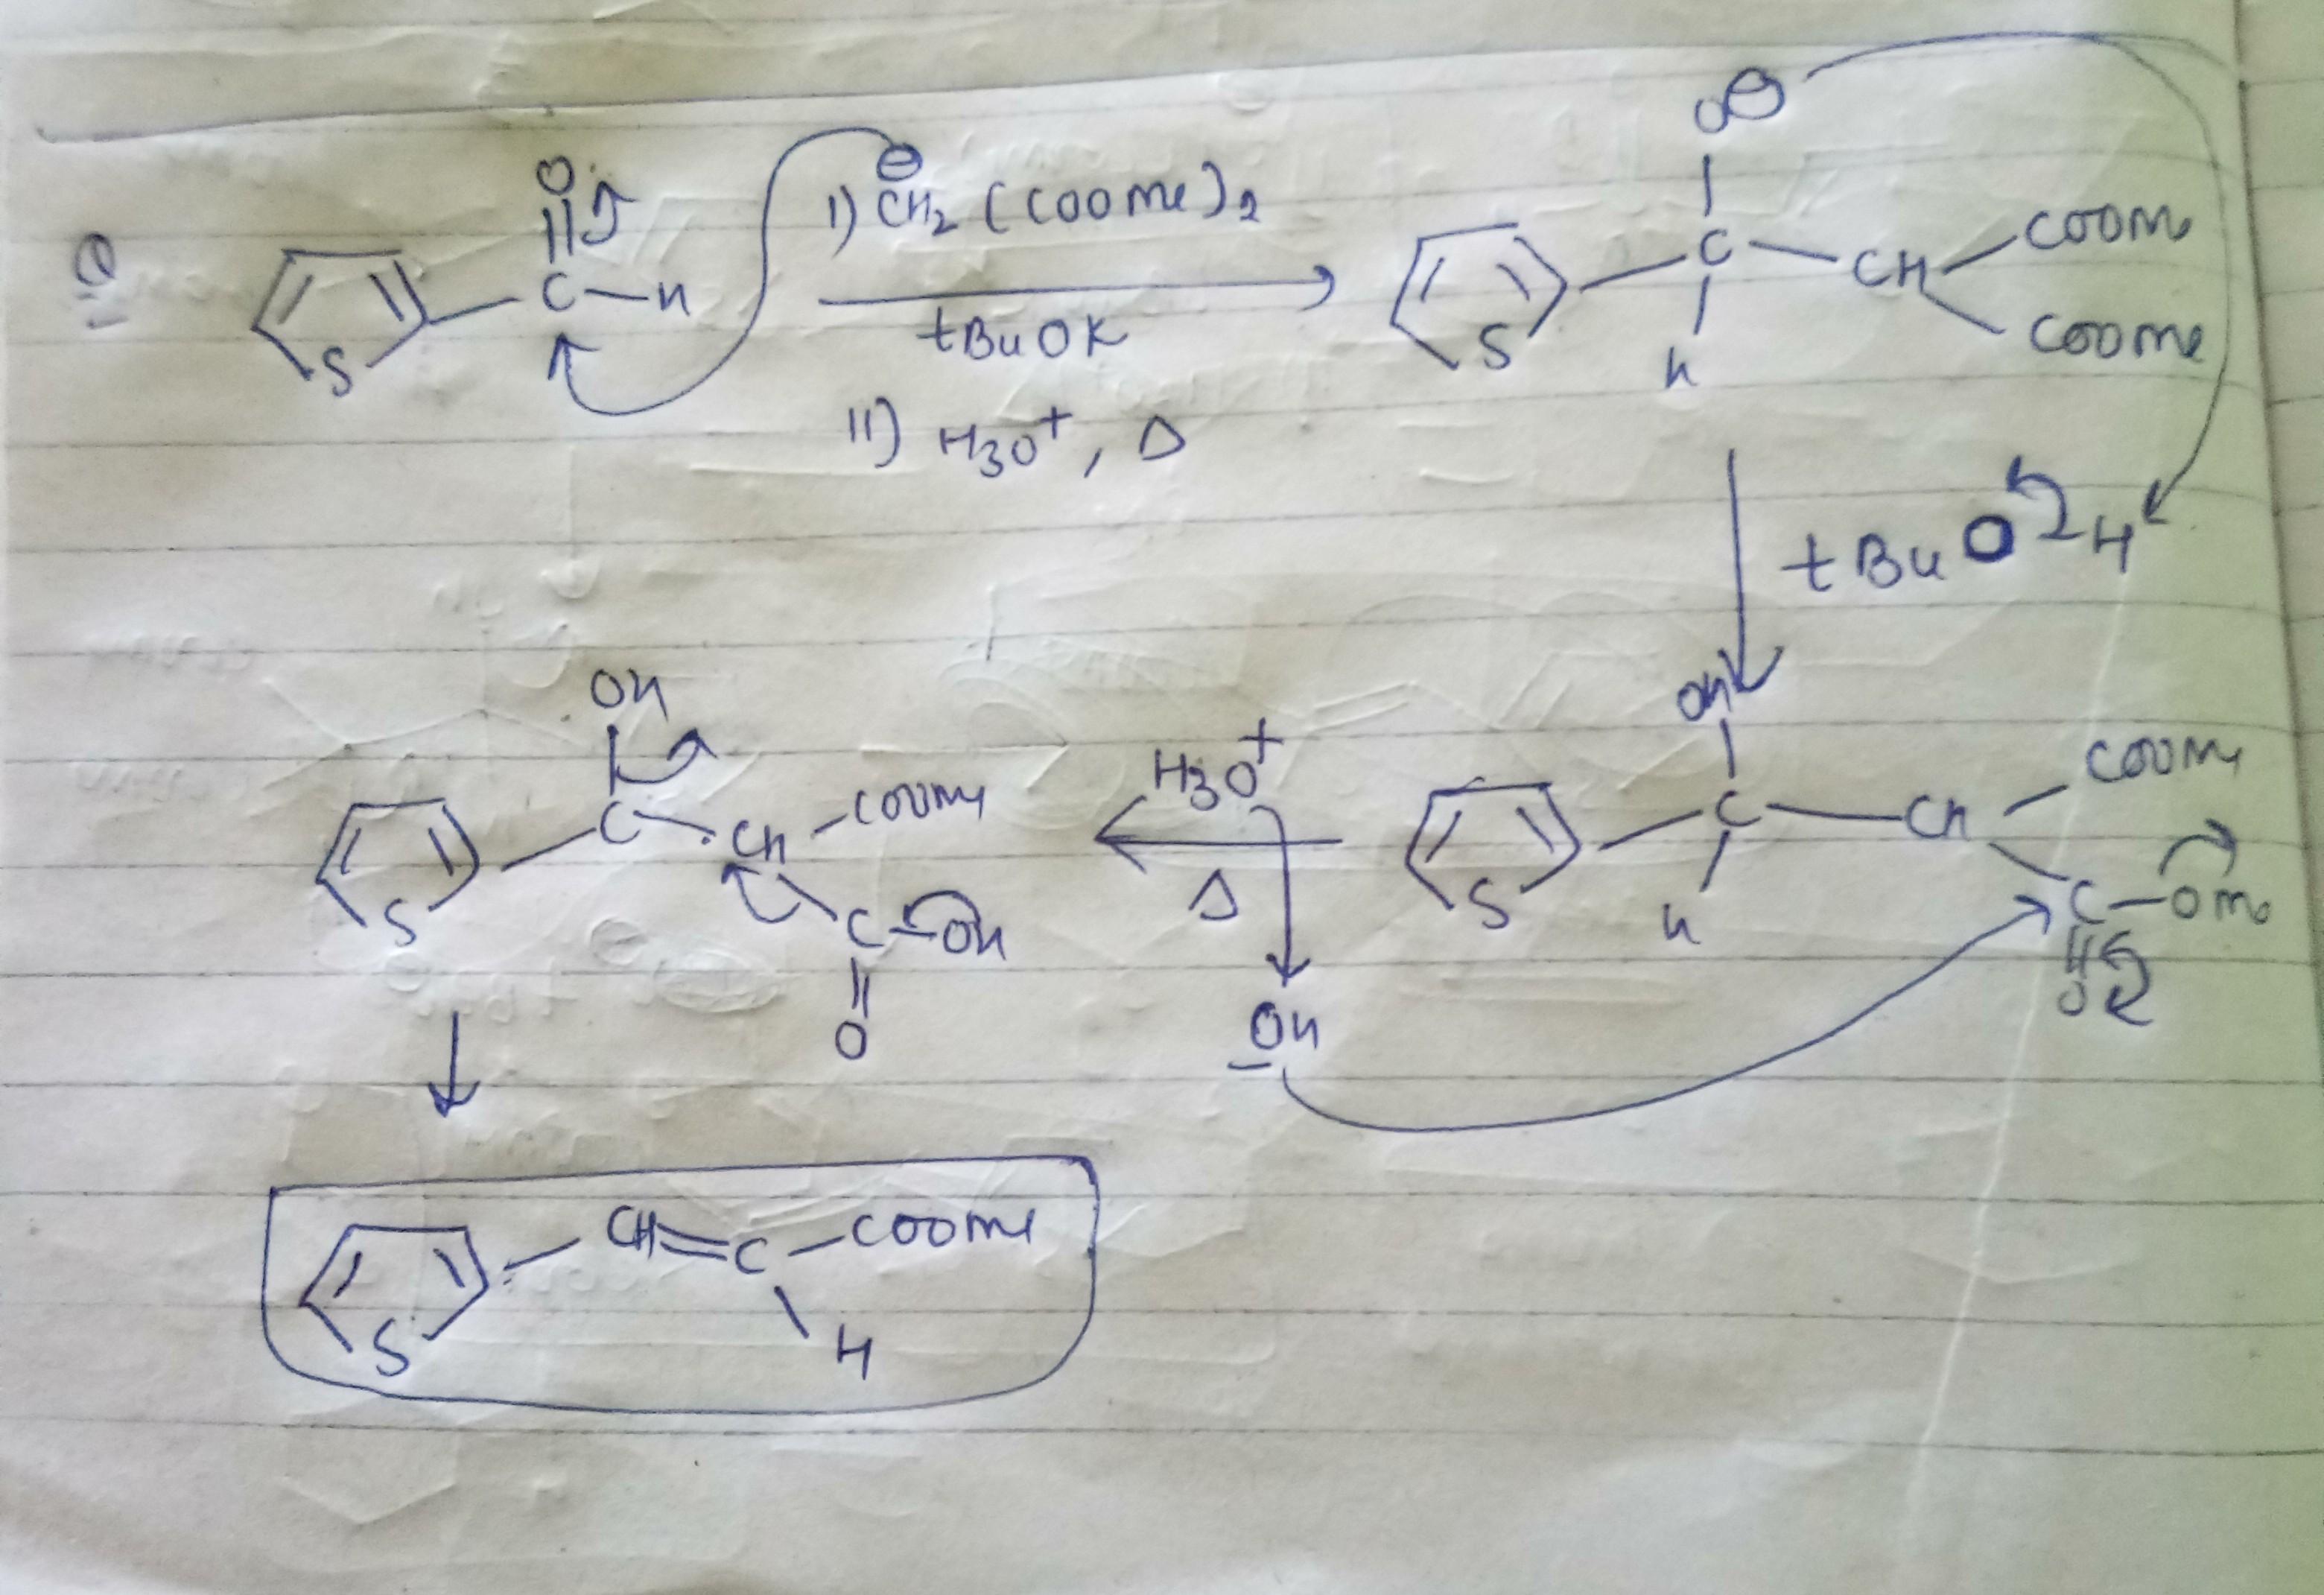 Q:1
O
C–H
S
⊖
I) CH2 (COOMe)2
tBuOK
II) H3O+, Δ
O⊖
C – CH
COOMe
COOMe
H
S
tBuO H
OH
C – CH
COOMe
C – OMe
O
H
S
H3O+
Δ
–OH
OH
C
CH – COOMe
C – OH
O
S
CH=C – COOMe
H
S